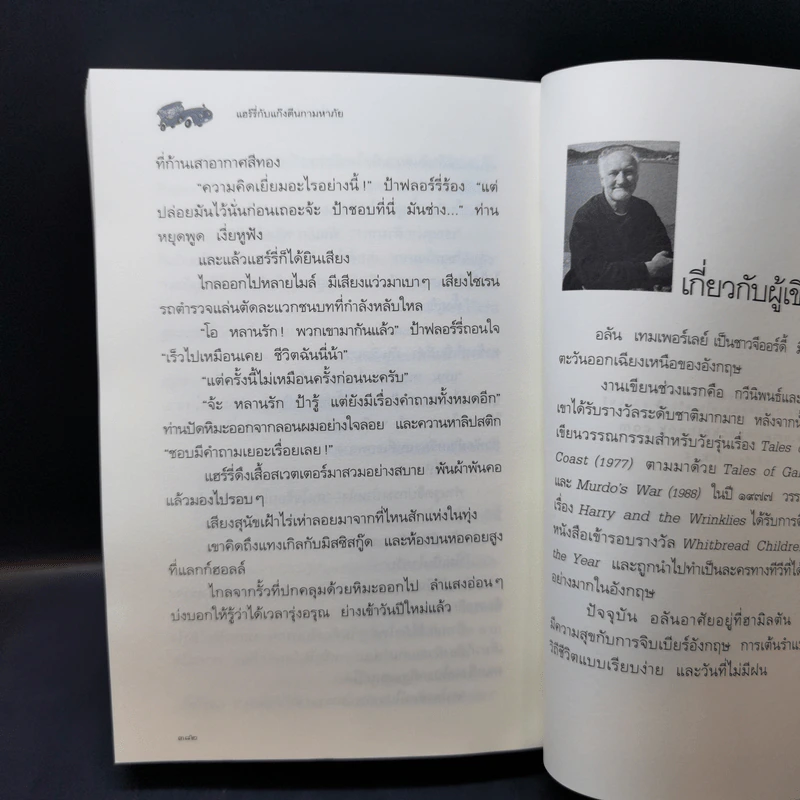 แฮร์รี่กับแก๊งตีนกามหาภัย
ที่ก้านเสาอากาศสีทอง
“ความคิดเยี่ยมอะไรอย่างนี้!” ป้าฟลอร์รี่ร้อง “แต่
ปล่อยมันไว้นั่นก่อนเถอะจ้ะ ป้าชอบที่นี่ มันช่าง...” ท่าน
หยุดพูด เงี่ยหูฟัง
และแล้วแฮร์รี่ก็ได้ยินเสียง
ไกลออกไปหลายไมล์ มีเสียงแว่วมาเบาๆ เสียงไซเรน
รถตำรวจแล่นตัดละแวกชนบทที่กำลังหลับใหล
“โอ หลานรัก! พวกเขามากันแล้ว” ป้าฟลอร์รี่ถอนใจ
“เร็วไปเหมือนเคย ชีวิตฉันนี่น้า”
“แต่ครั้งนี้ไม่เหมือนครั้งก่อนนะครับ”
“จ้ะ หลานรัก ป้ารู้ แต่ยังมีเรื่องคำถามทั้งหมดอีก”
ท่านปัดหิมะออกจากลอนผมอย่างใจลอย และควานหาลิปสติก
“ชอบมีคำถามเยอะเรื่อยเลย!”
แฮร์รี่ดึงเสื้อสเวตเตอร์มาสวมอย่างสบาย พันผ้าพันคอ
แล้วมองไปรอบๆ
เสียงสุนัขเฝ้าไร่เห่าลอยมาจากที่ไหนสักแห่งในทุ่ง
เขาคิดถึงแทงเกิลกับมิสซิสกู๊ด และห้องบนหอคอยสูง
ที่แลกก์ฮอลล์
ไกลจากรั้วที่ปกคลุมด้วยหิมะออกไป ลำแสงอ่อนๆ
บ่งบอกให้รู้ว่าได้เวลารุ่งอรุณ ย่างเข้าวันปีใหม่แล้ว
เกี่ยวกับผู้เขี
อลัน เทมเพอร์เลย์ เป็นชาวจีออร์ดี้
ตะวันออกเฉียงเหนือของอังกฤษ
งานเขียนช่วงแรกคือ กวีนิพนธ์และ
เขาได้รับรางวัลระดับชาติมากมาย หลังจากนั้
เขียนวรรณกรรมสำหรับวัยรุ่นเรื่อง Tales
Coast (1977) ตามมาด้วย Tales of Gal
และ Murdo's War (1988) ในปี ๑๙๗๗ วรร
เรื่อง Harry and the Wrinklies ได้รับการตี
หนังสือเข้ารอบรางวัล Whitbread Children
the Year และถูกนำไปทำเป็นละครทางทีวีที่ได้
อย่างมากในอังกฤษ
ปัจจุบัน อลันอาศัยอยู่ที่ฮามิลตัน
มีความสุขกับการจิบเบียร์อังกฤษ การเต้นรำแ
วิถีชีวิตแบบเรียบง่าย และวันที่ไม่มีฝน